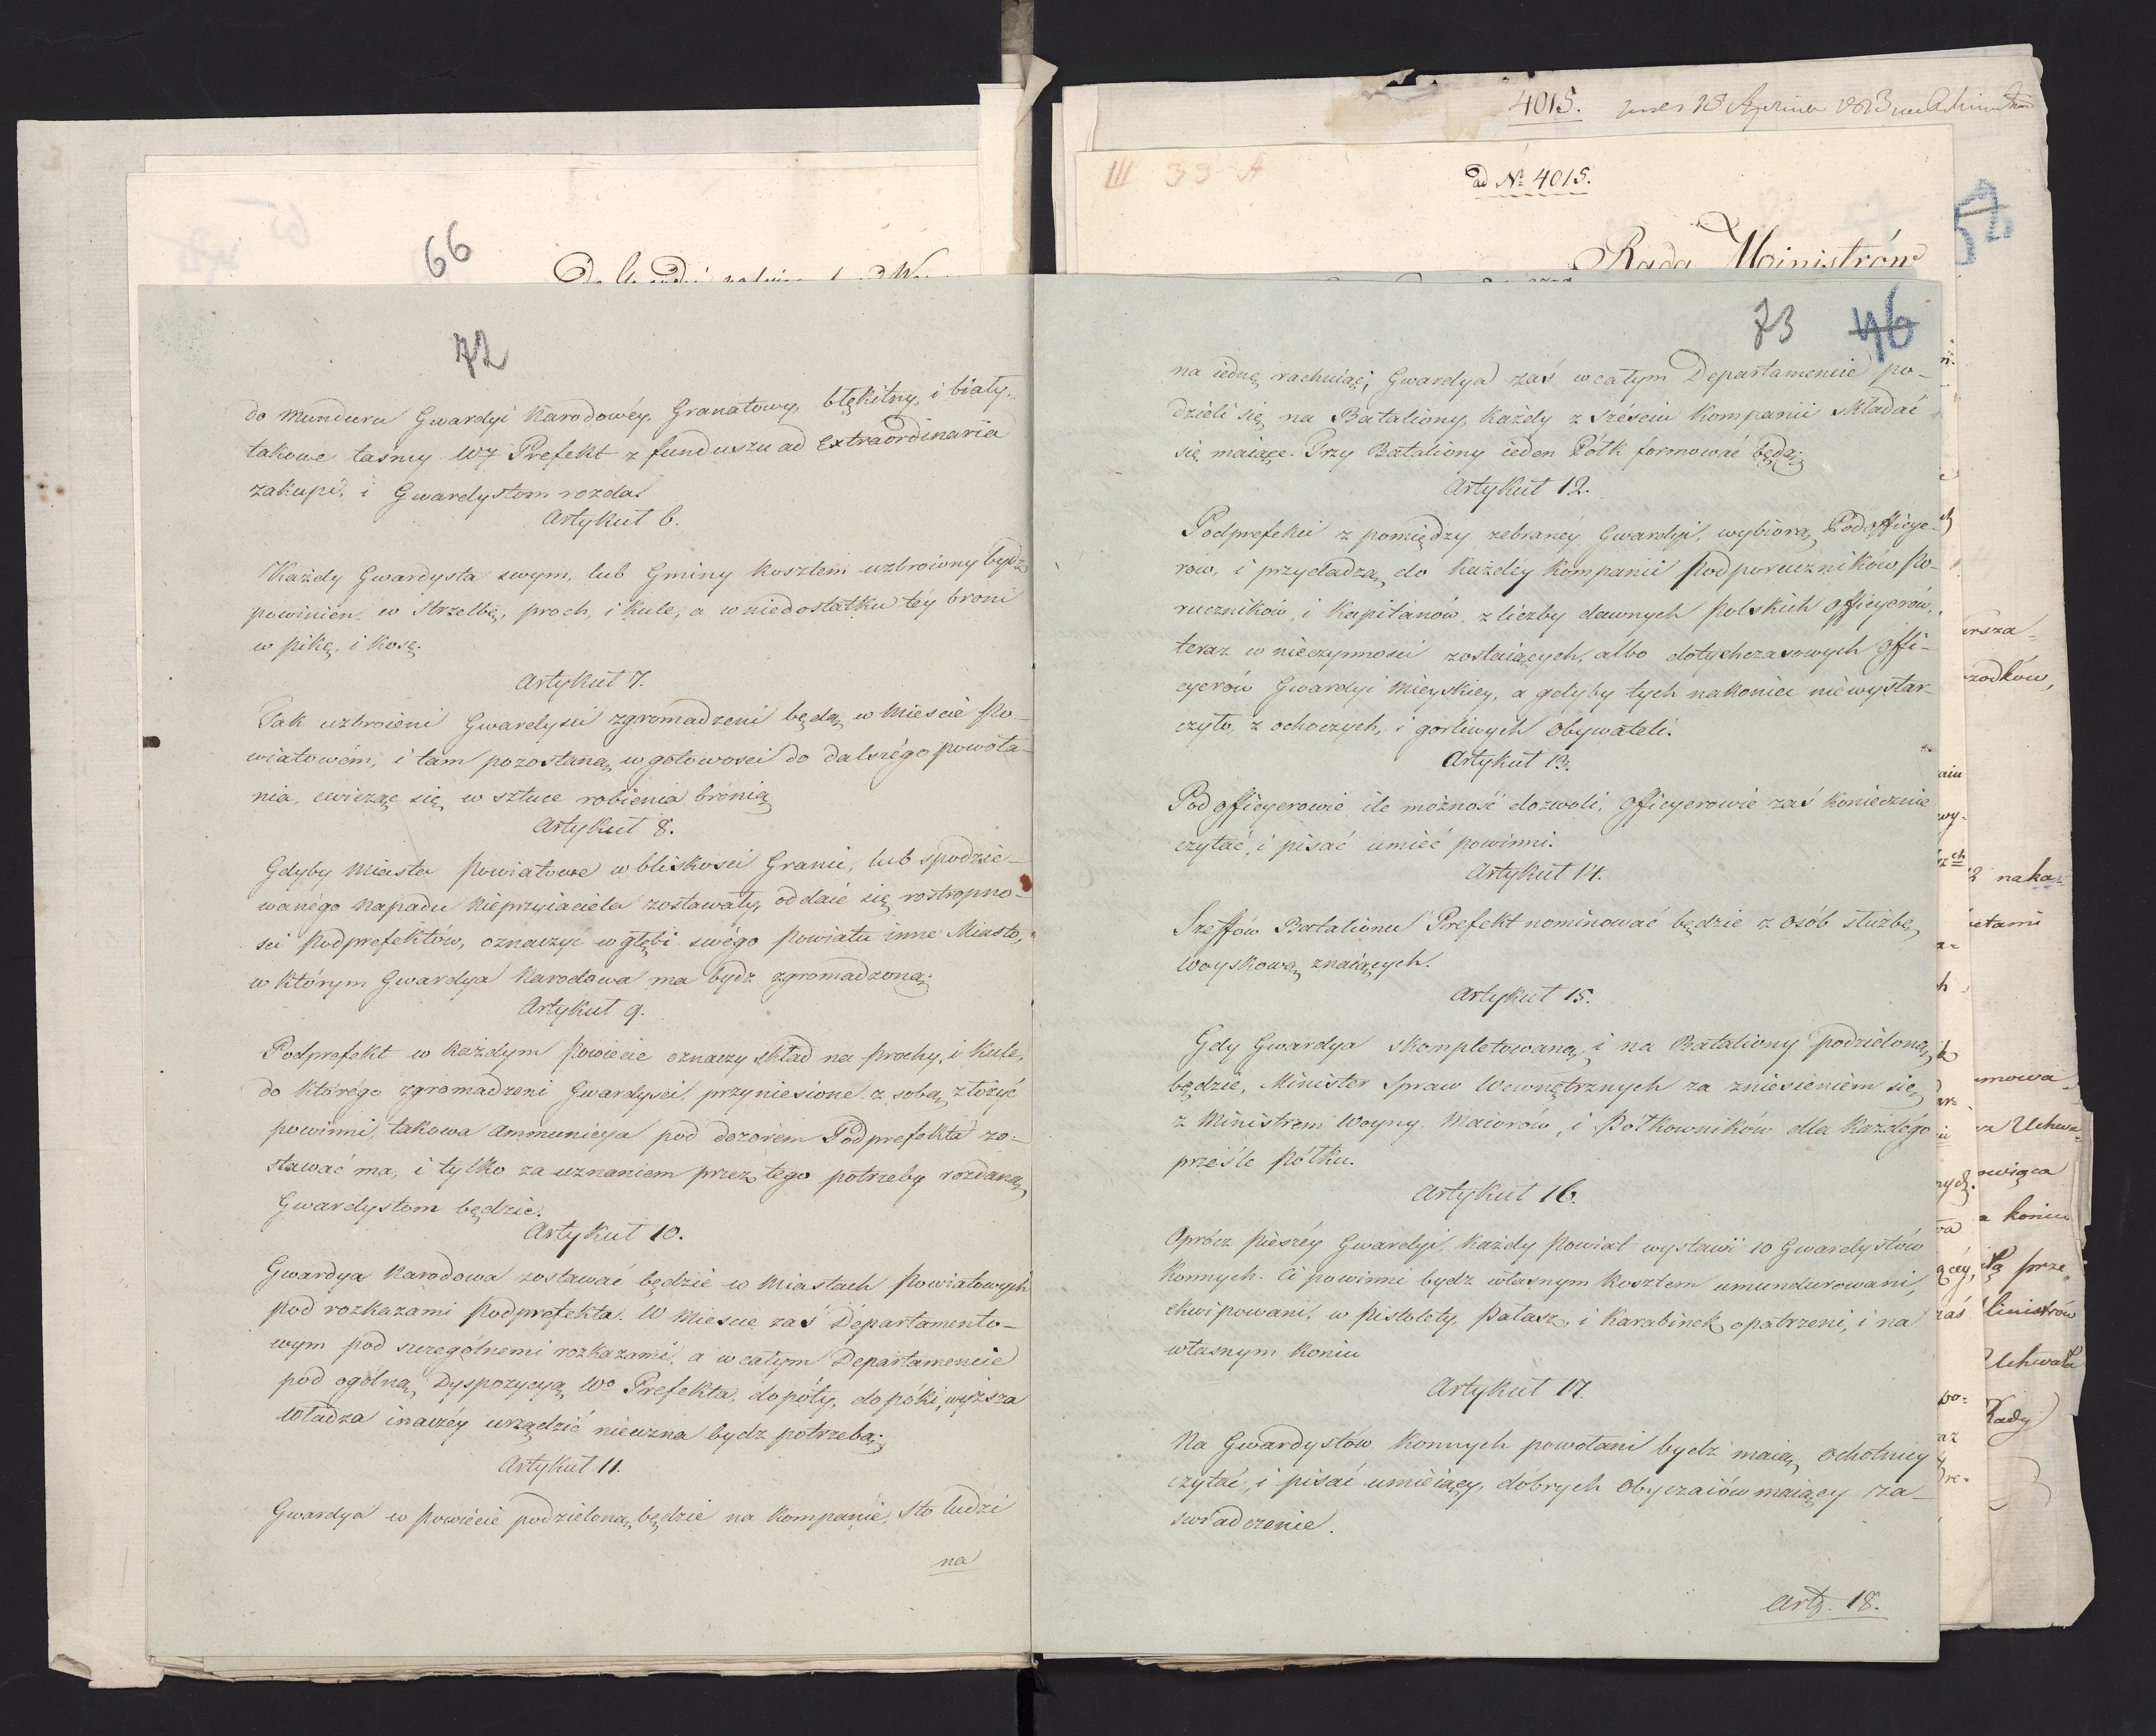 66
72
do Munduru Gwardyi Narodowéy, Granatowy, błękitny, i biały,
takowe tasmy W J Prefekt z funduszu ad Extraordinaria
zakupi, i Gwardystom rozda.
Artykuł 6.
Każdy Gwardysta swym, lub Gminy kosztem uzbroiony bydz
powinien, w Strzelbę, proch, i kule, a w niedostatku téy broni
w pikę, i kosę.
Artykuł 7.
Tak uzbroieni Gwardysci zgromadzeni będą w Miescie Po-
wiatowém, i tam pozostaną w gotowosci do dalszégo powoła-
nia, cwicząc się w sztuce robienia bronią
Artykuł 8.
Gdyby Miasta Powiatowe w bliskosci Granic, lub spodzie-
wanégo Napadu Nieprzyiaciela zostawały, oddaie się rostropno-
sci Podprefektów, oznaczyc w głębi swégo Powiatu inne Miasto,
w którym Gwardya Narodowa ma bydz zgromadzoną.
Artykuł 9.
Podprefekt w każdym Powiecie oznaczy skład na Prochy, i kule,
do którégo zgromadzeni Gwardysci przyniesione z sobą złożyć
powinni, takowa Ammunicya pod dozorem Podprefekta zo-
stawać ma, i tylko za uznaniem przez tego potrzeby rozdaną
Gwardystom będzie.
Artykuł 10.
Gwardya Narodowa zostawać będzie w Miastach Powiatowych
pod rozkazami Podprefekta. W Miescie zaś Departamento-
wym pod szczególnemi rozkazami, a w całym Departamencie
pod ogólną Dyspozycyą Wo Prefekta, dopóty, dopóki wyższa
Władza inaczéy urządzić nieuzna bydz potrzebą.
Artykuł 11.
Gwardya w Powiecie podzieloną będzie na Kompanie, Sto ludzi
na
4015.
ad No 4015.
III 33 A
Rada Ministrów
73 46
na iedną rachuiąc; Gwardya zaś w całym Departamencie po-
dzieli się na Bataliony, każdy z Sześciu Kompanii składać
się maiące. Trzy Bataliony ieden Półk formować będą.
Artykuł 12.
Podprefekci z pomiędzy zebranéy Gwardyi, wybiorą Podofficye-
rów, i przydadzą do każdey Kompanii Podporuczników Po-
ruczników, i Kapitanów, z liczby dawnych Polskich Officyerów,
teraz w nieczynnosci zostaiących, albo dotychczasowych Offi-
cyerów Gwardyi Mieyskiey, a gdyby tych nakoniec niewystar-
czyło, z ochoczych, i gorliwych Obywateli.
Artykuł 13.
Podofficyerowie ile możność dozwoli, Officyerowie zaś koniecznie
czytać, i pisać umieć powinni.
Artykuł 14.
Szeffów Batalionu Prefekt nominować będzie z Osób służbę
Woyskową znaiących.
Artykuł 15.
Gdy Gwardya skompletowaną, i na Bataliony podzieloną
będzie, Minister Spraw Wewnętrznych za zniesieniem się
z Ministrem Woyny, Maiorów, i Półkowników dla każdégo
prześle Półku.
Artykuł 16.
Oprócz pieszéy Gwardyi, każdy Powiat wystawi 10 Gwardystów
Konnych. Ci powinni bydz własnym kosztem umundurowani,
ekwipowani, w Pistolety, Pałasz, i Karabinek opatrzeni, i na
własnym Koniu
Artykuł 17.
Na Gwardystów Konnych powołani bydz maią Ochotnicy
czytać, i pisać umieiący, dobrych Obyczaiów maiący za-
swiadczenie.
Art. 18.